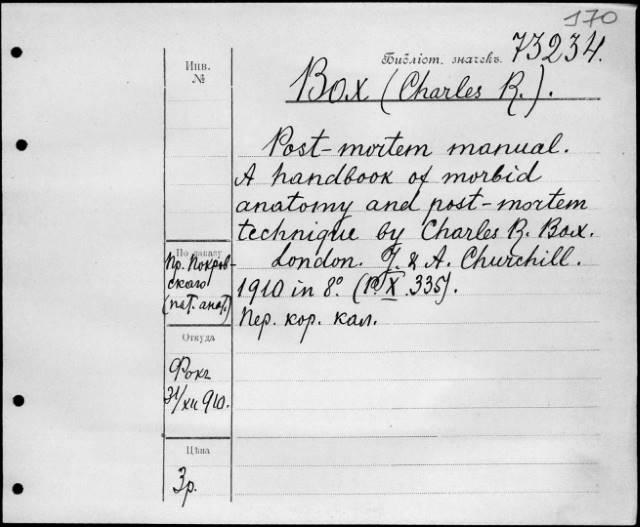 170
Библіот. значекъ. 73234.
Инв.
№
Box (Charles R.).
Post-mortem manual.
A handbook of morbid
anatomy and post-mortem
technique by Charles R. Box.
London. J. & A. Churchill.
1910 in 8°. (P. X. 335).
Пер. кор. кал.
По заказу
Пр. Покров-
скаго
(пат. анат.)
Откуда
Фокъ
31/XII 910.
Цѣна
3р.